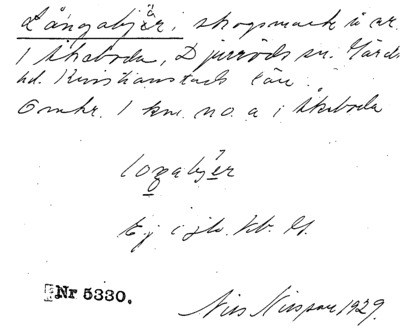 Långabjär, skogsmark å nr
1 Åkeboda, Djurröds sn. Gärds
hd. Kristianstads län.
Omkr. 1 km. n.o. a i Åkeboda
loŋabjer
Ej i jb. kb. G.
Nr 5330.
Nils Nilsson 1929.